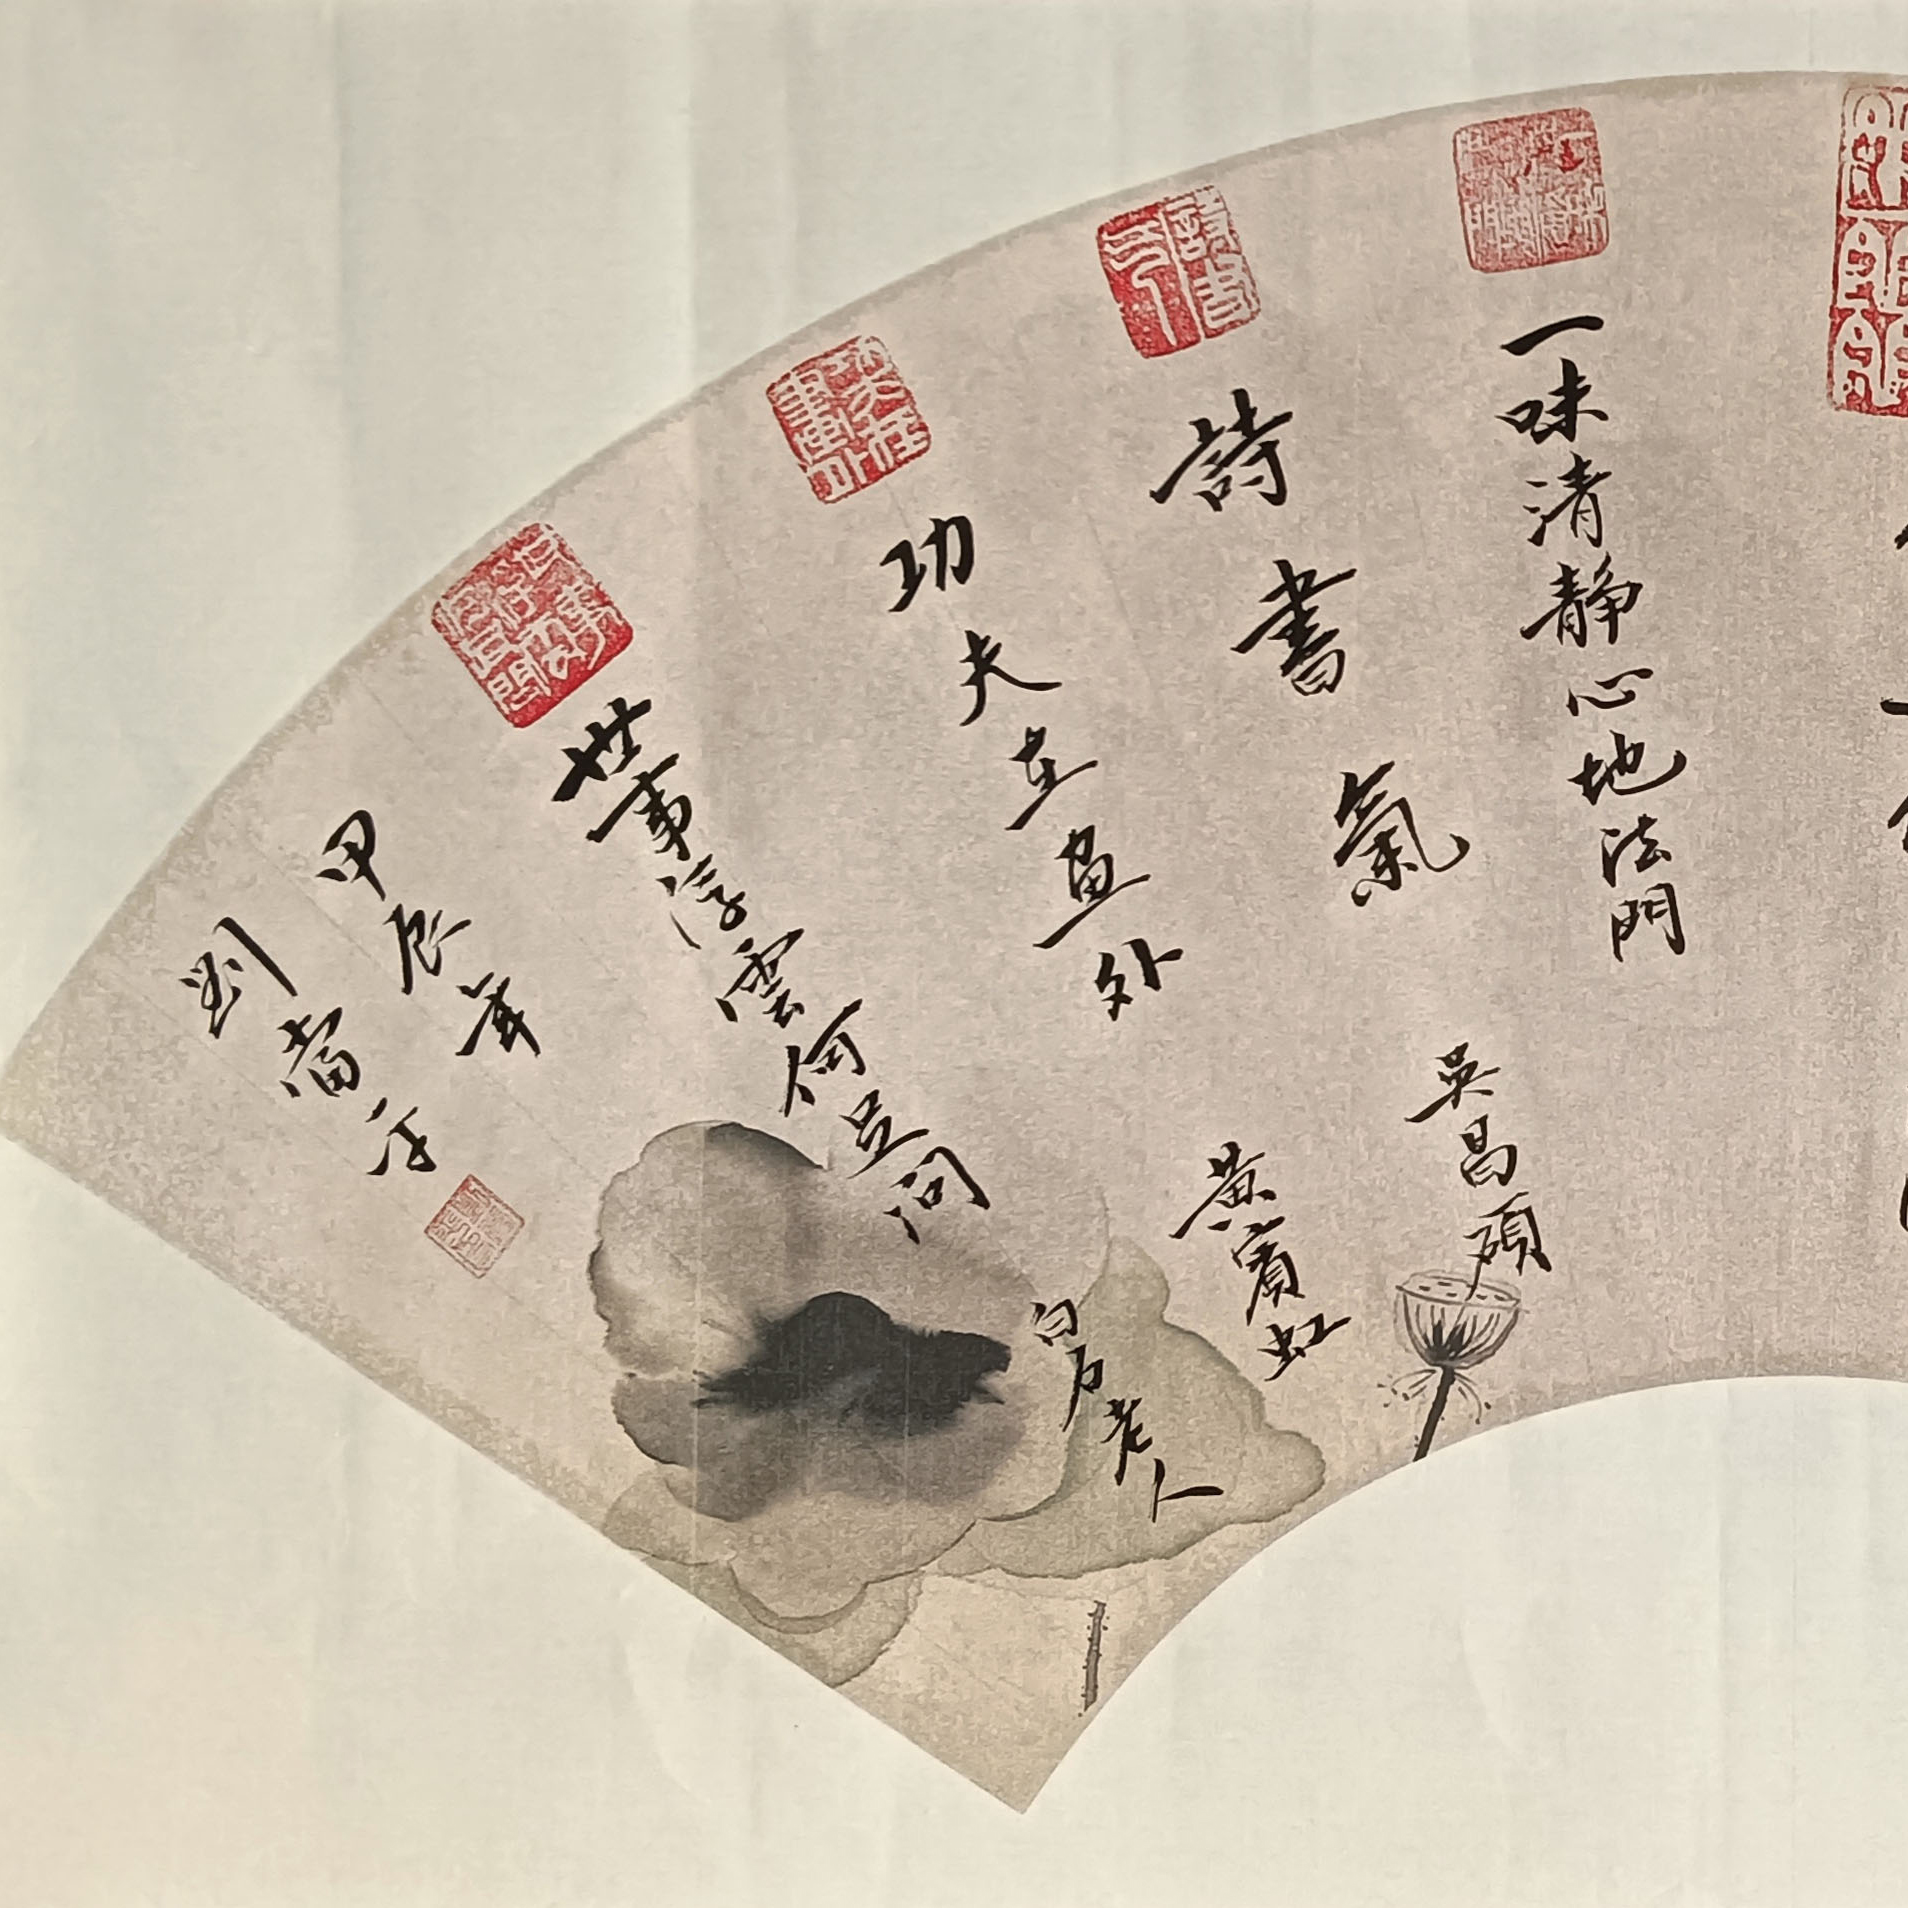 一味清靜心地法門
吳昌碩
詩書氣
黃賓虹
功夫在畫外
白石老人
世事浮雲何足問
甲辰年
劉當平